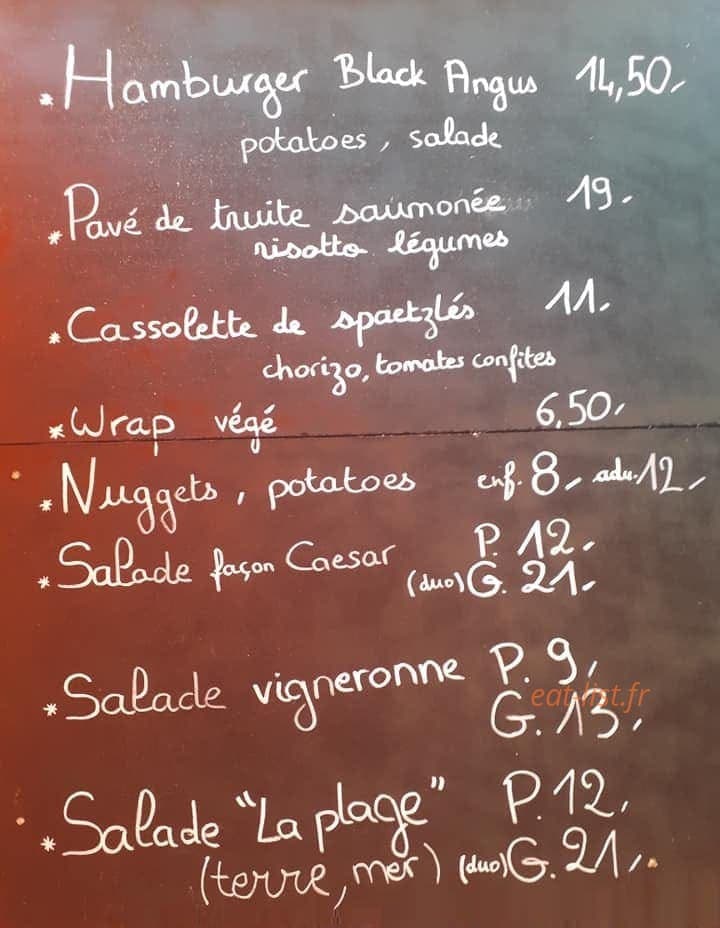 * Hamburger Black Angus 14,50,-
potatoes, salade
* Pavé de truite saumonée 19.-
risotto légumes
* Cassolette de spaetzlés 11.-
chorizo, tomates confites
* Wrap végé 6,50,-
* Nuggets, potatoes enf. 8,- adu. 12,-
* Salade façon Caesar P. 12.-
(duo) G. 21.-
* Salade vigneronne P. 9,-
eat-list.fr
G. 13,-
* Salade "La plage" P. 12,-
(terre, mer) (duo) G. 21,-